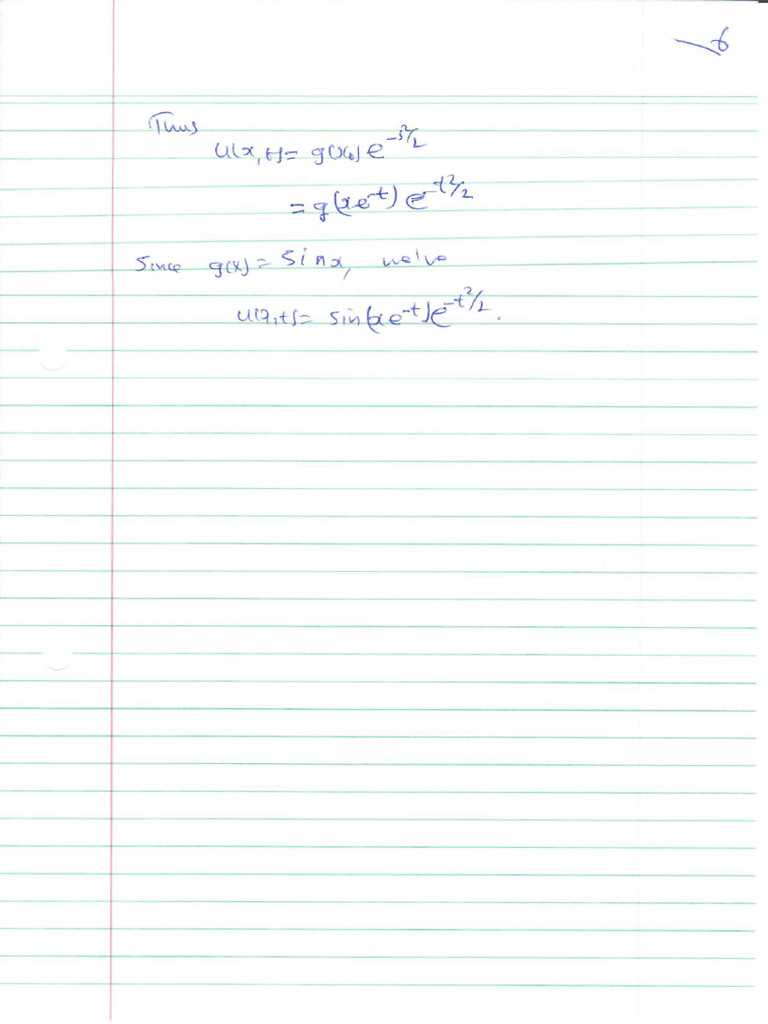 6
Thus
u(x,t) = g(x₀) e^{-s²/2}
= g(xe^{-t}) e^{-t²/2}
Since g(x) = sin x, we've
u(x,t) = sin(xe^{-t}) e^{-t²/2}.